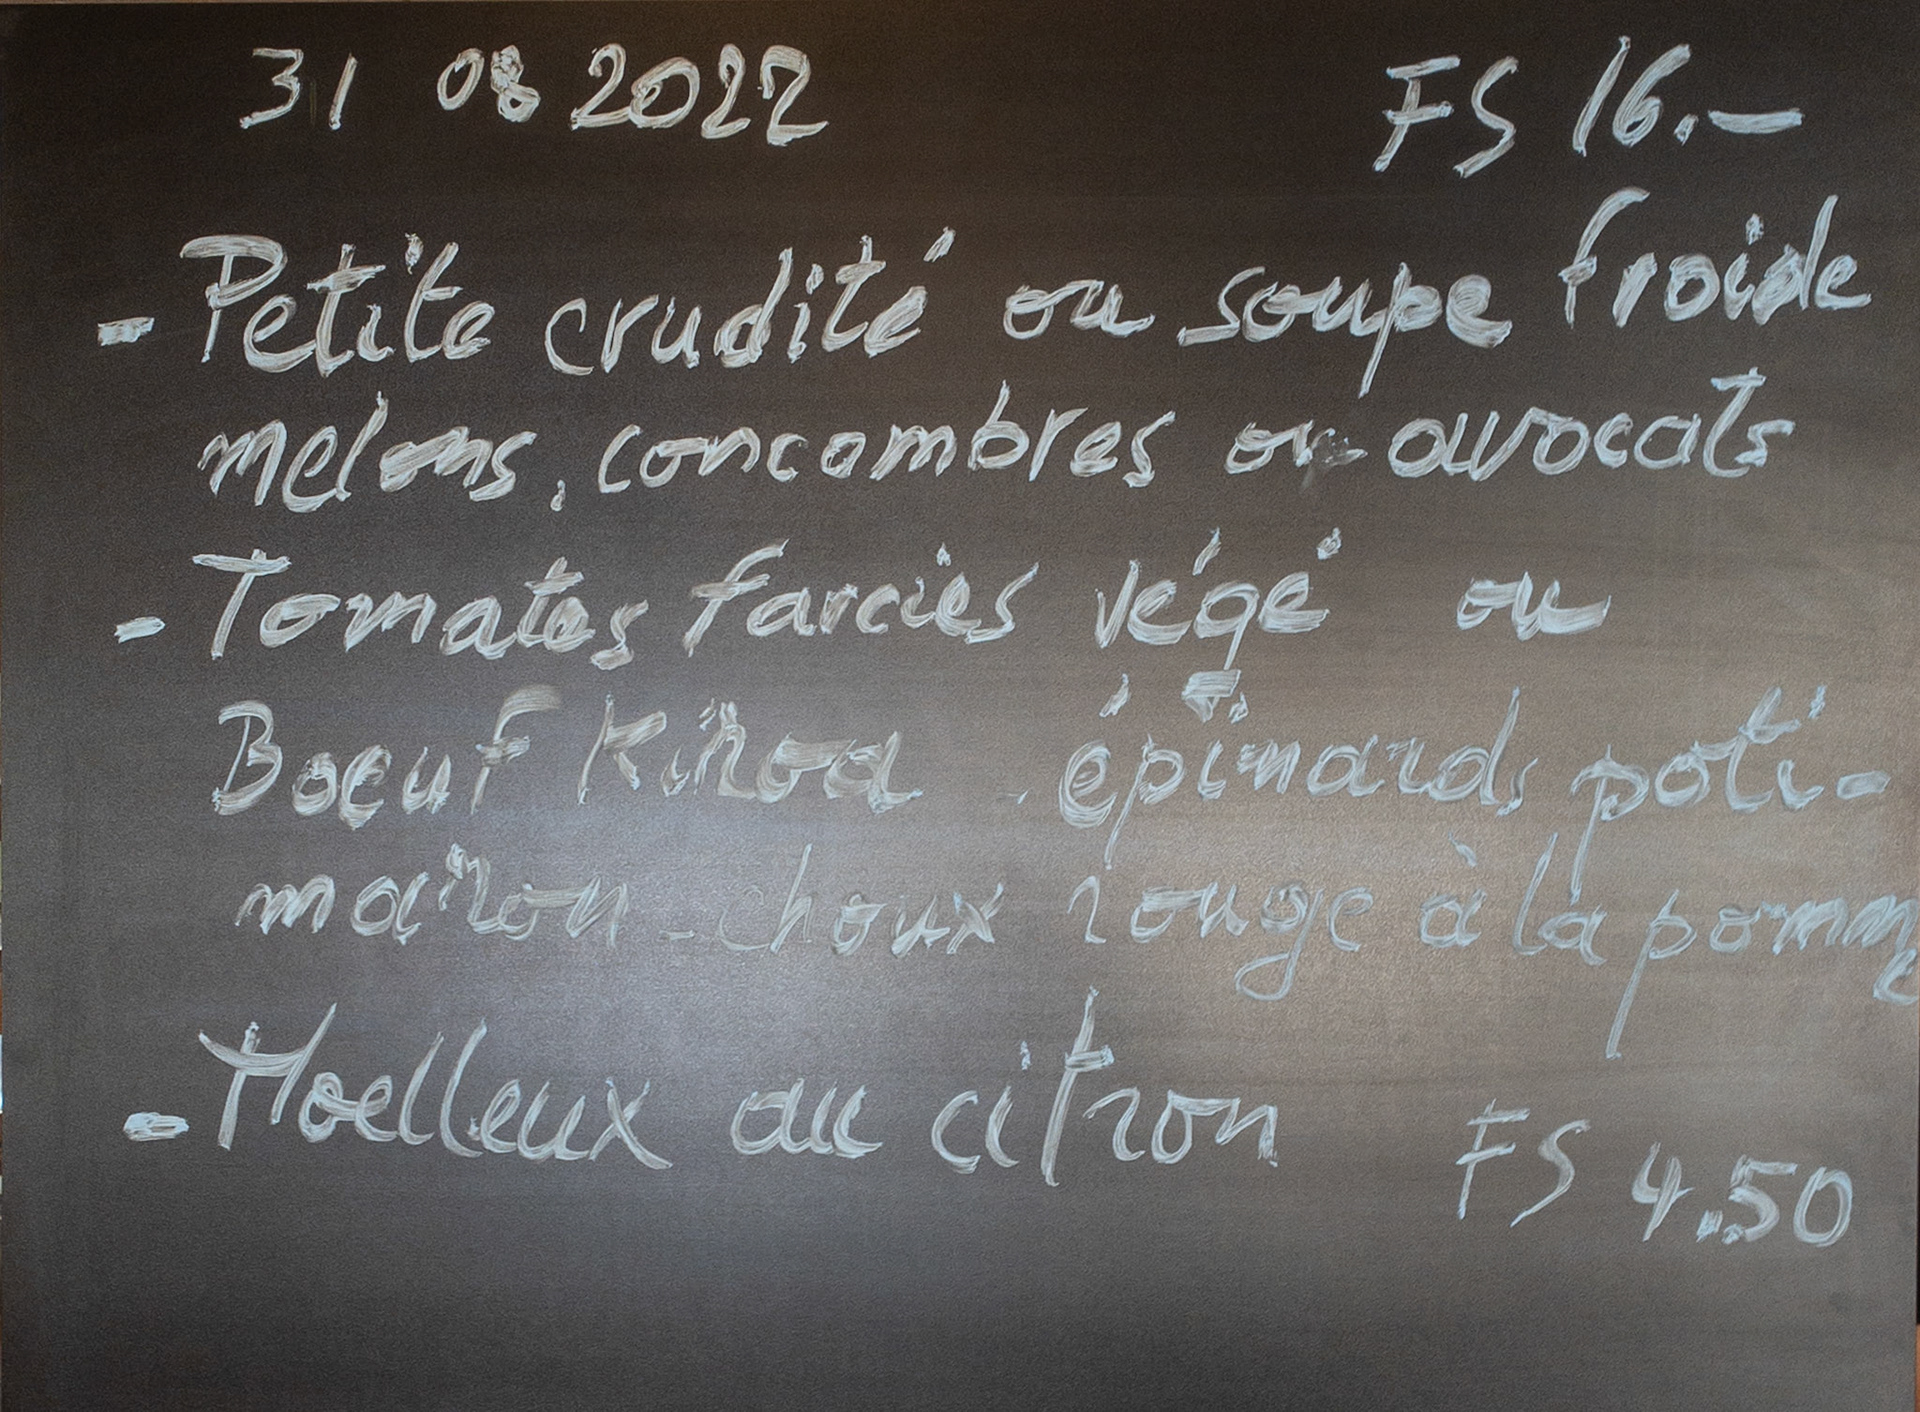 31 08 2022 FS 16.–
- Petite crudité ou soupe froide
melons, concombres ou avocats
- Tomates farcies végé ou
Boeuf - épinards poti-
maîron - choux rouge à la pomme
- Moelleux au citron FS 4.50